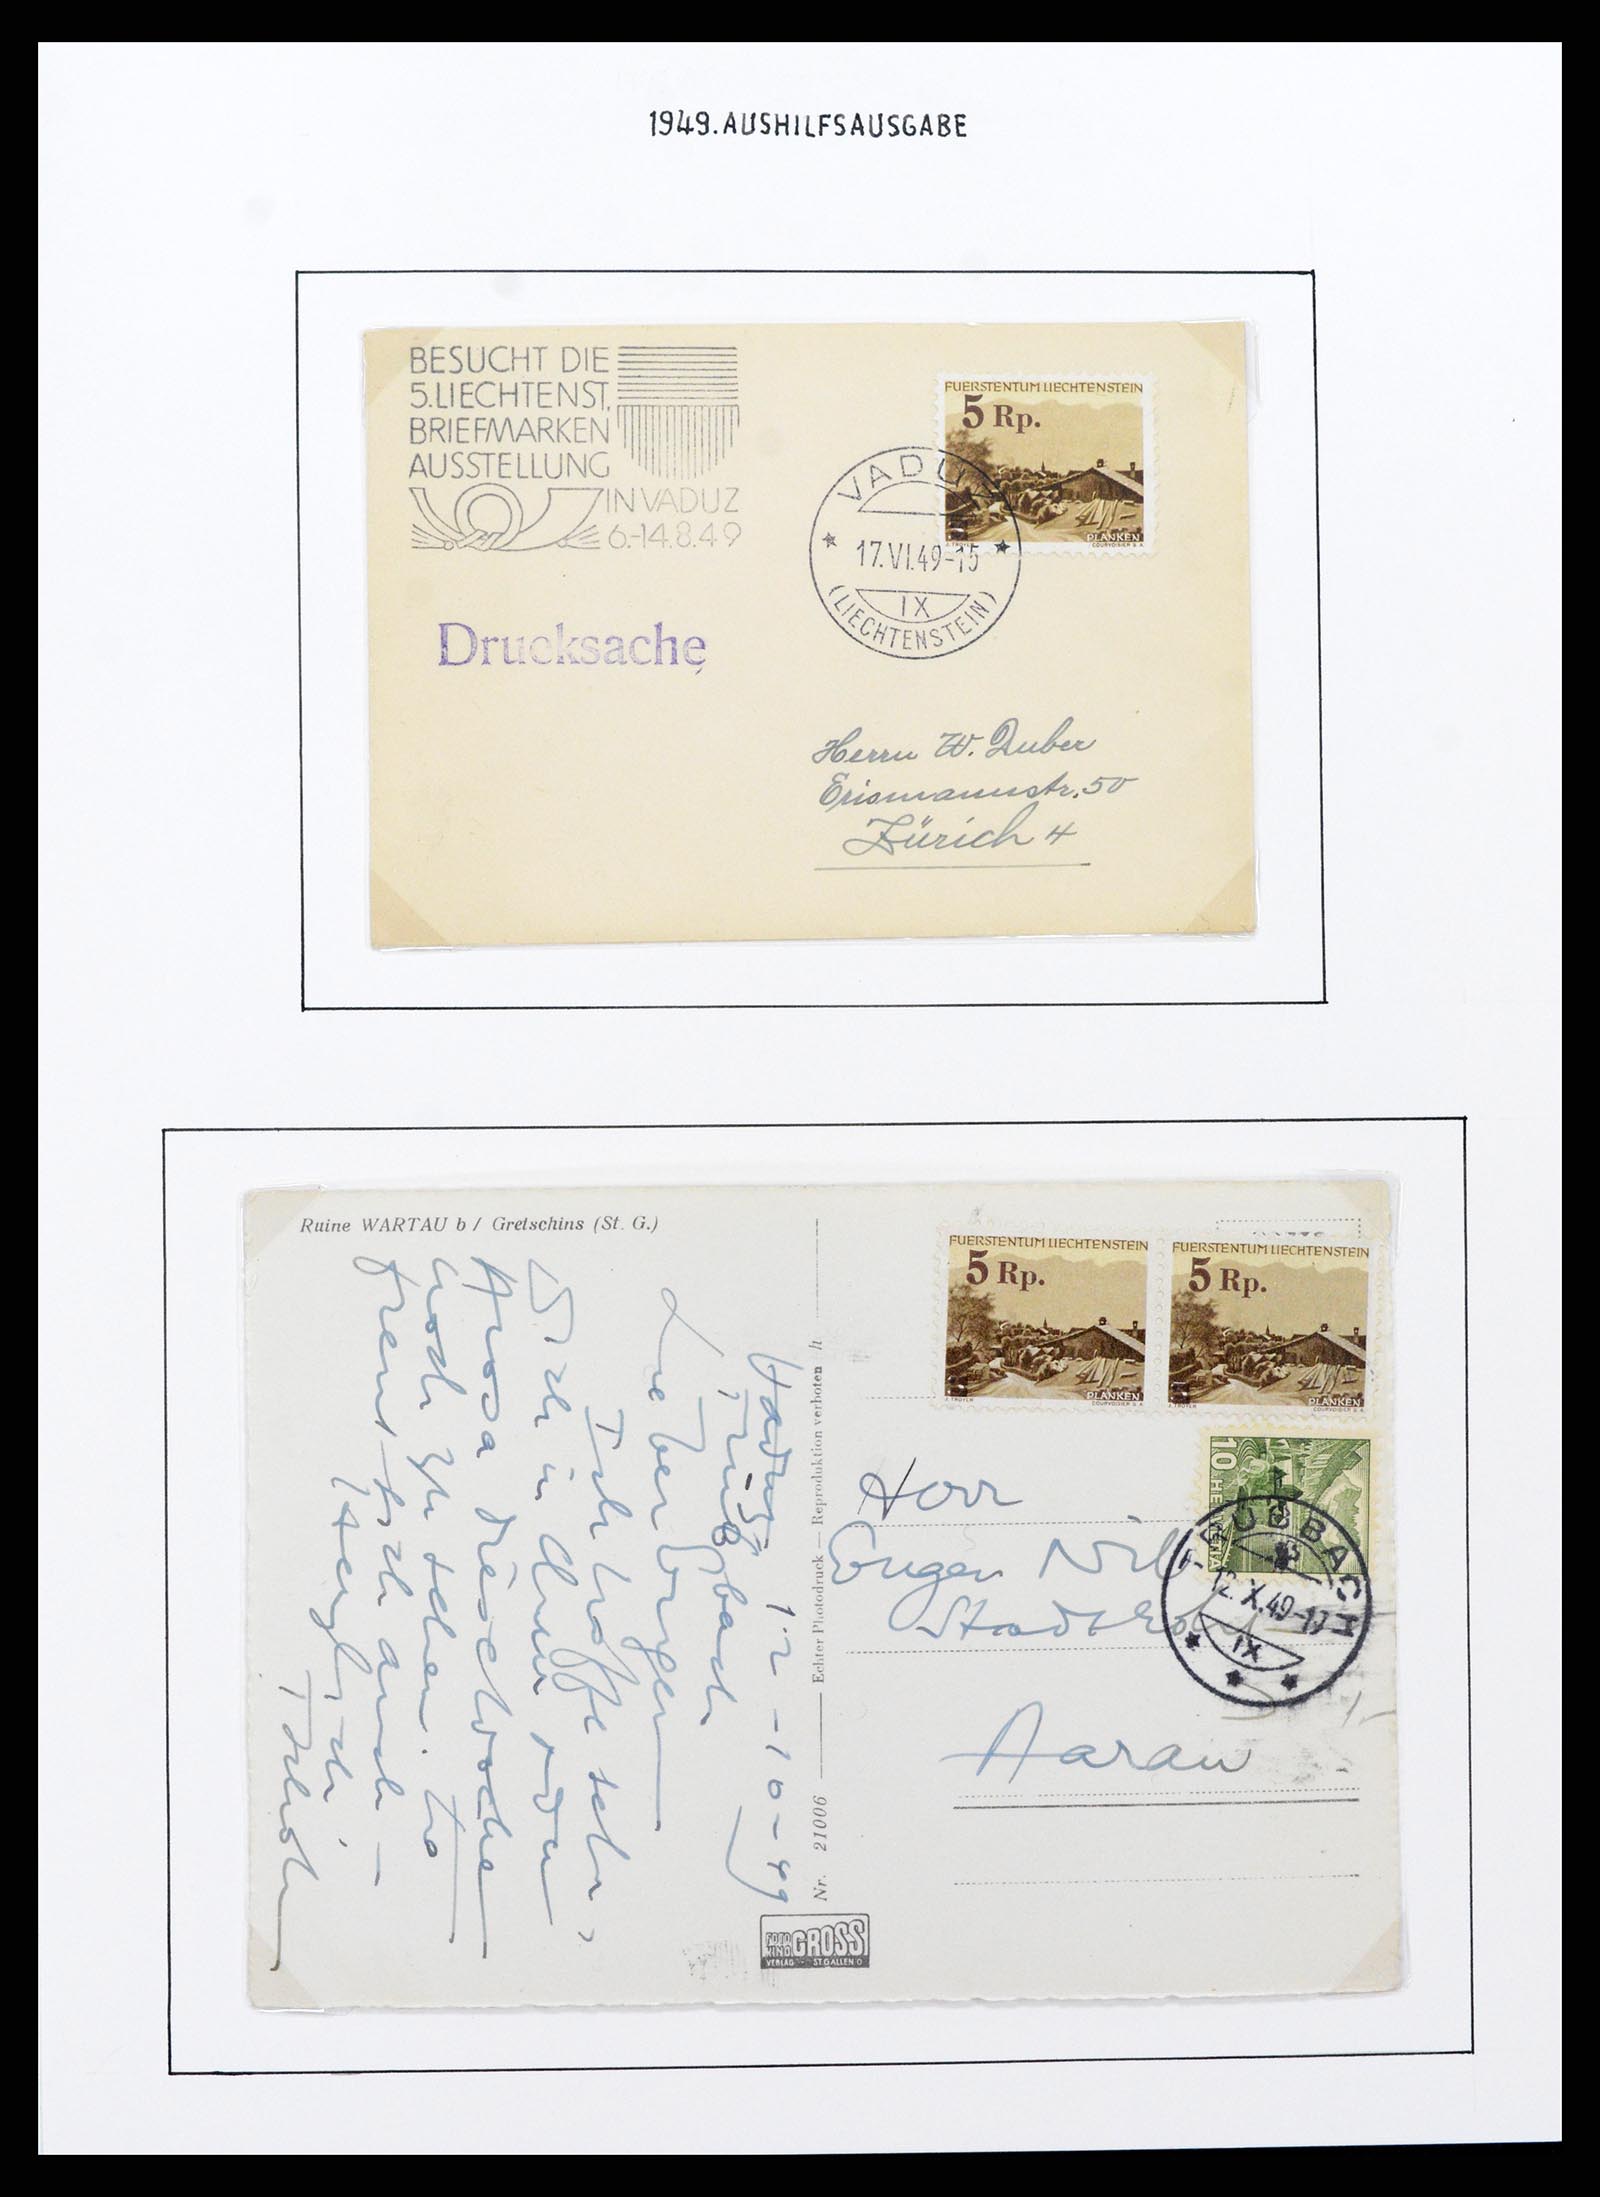 1949.AUSHILFSAUSGABE
BESUCHT DIE
5.LIECHTENST.
BRIEFMARKEN
AUSSTELLUNG
IN VADUZ
6.-14.8.49
FUERSTENTUM LIECHTENSTEIN
5 Rp.
PLANKEN
J. TROYER
COURVOISIER S.A.
VADUZ
17.VI.49-15
IX
(LIECHTENSTEIN)
Drucksache
Herrn W. Duber
Erismannstr. 50
Zürich 4
Ruine WARTAU b / Gretschins (St. G.)
FUERSTENTUM LIECHTENSTEIN
5 Rp.
PLANKEN
J. TROYER
COURVOISIER S.A.
FUERSTENTUM LIECHTENSTEIN
5 Rp.
PLANKEN
J. TROYER
COURVOISIER S.A.
10 HELVETIA
TRÜBBACH
2.X.49-19
IX
Vaduz
Trübbach 12-10-49
Ich hoffe sehr,
in Chur oder
Arosa
noch zu sehen.
freut sich auch
Herzlich
Nr. 21006 — Echter Photodruck — Reproduktion verboten h
Herr
Eugen
Aarau
FOTO KINO GROSS
VERLAG ST.GALLEN O